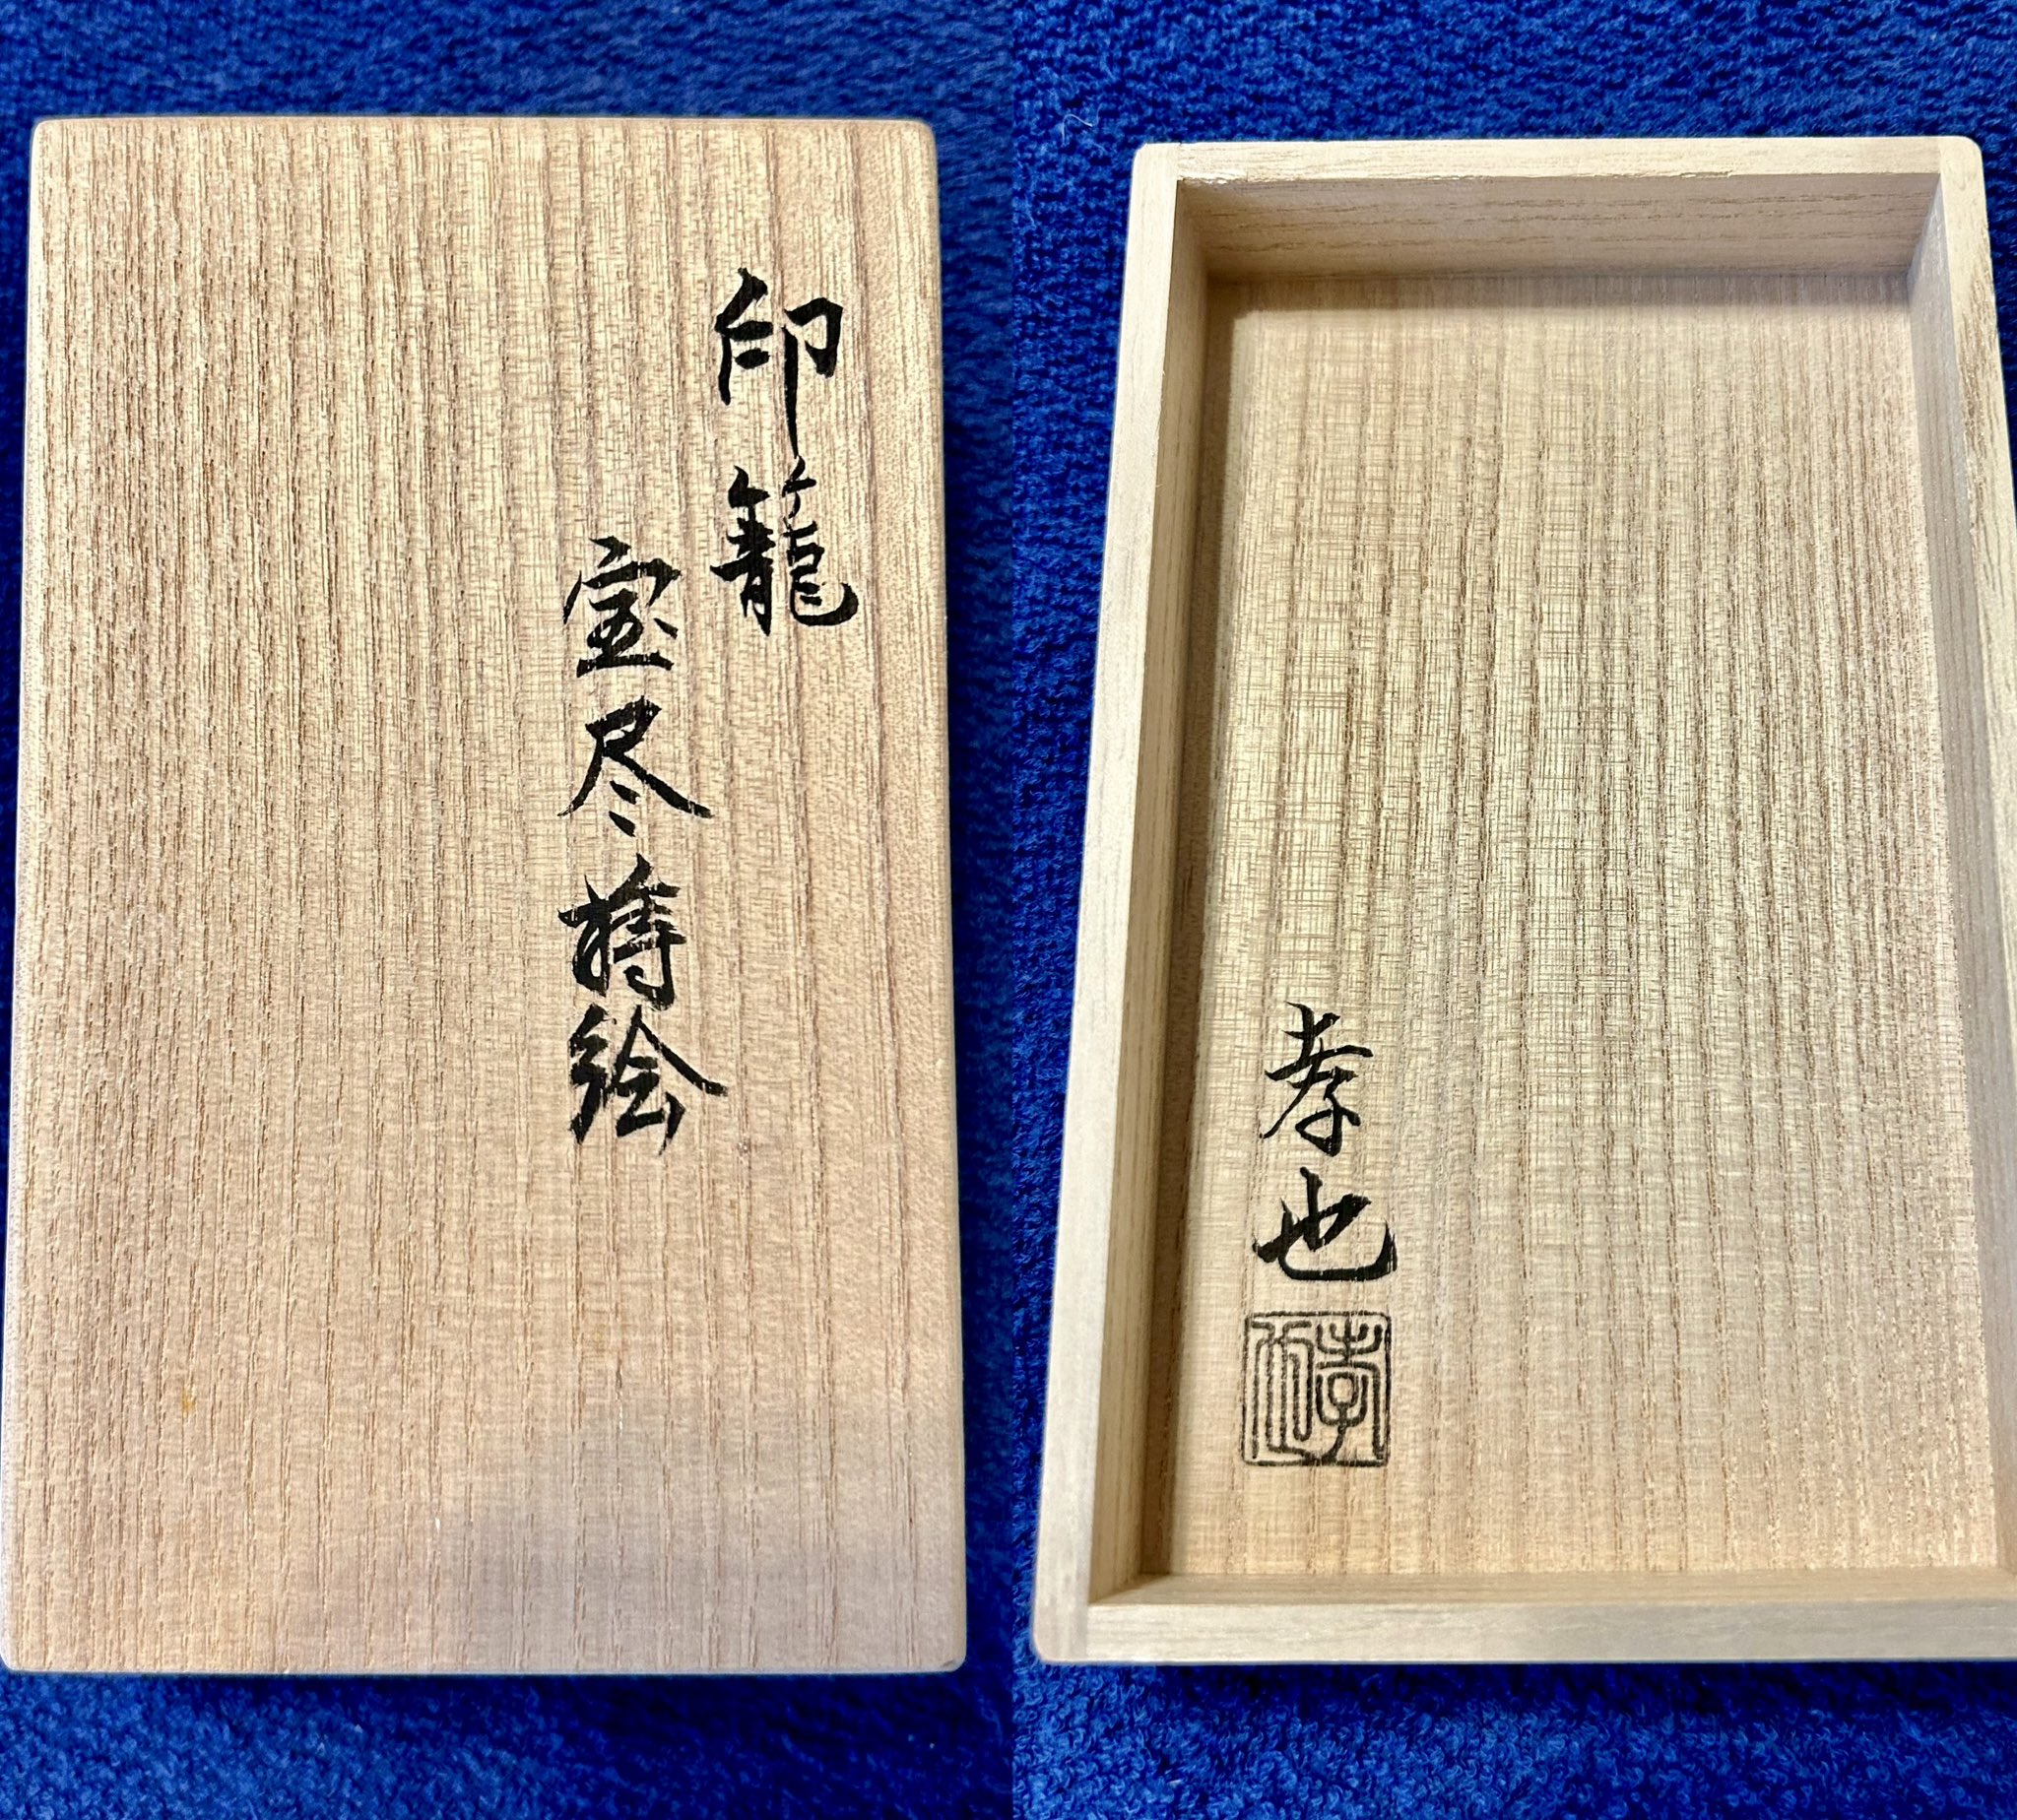 印籠
宝尽蒔絵
孝也
孝也